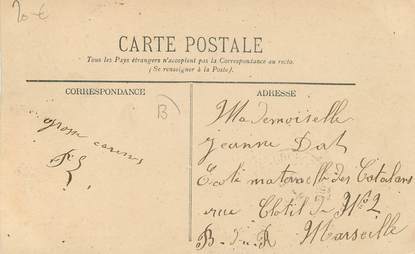 20 €
CARTE POSTALE
Tous les Pays étrangers n'acceptent pas la Correspondance au recto.
(Se renseigner à la Poste).
CORRESPONDANCE
B
ADRESSE
Mademoiselle
Jeanne Dat
Ecole maternelle des Catalans
rue Clotilde No 2
B-du-R Marseille